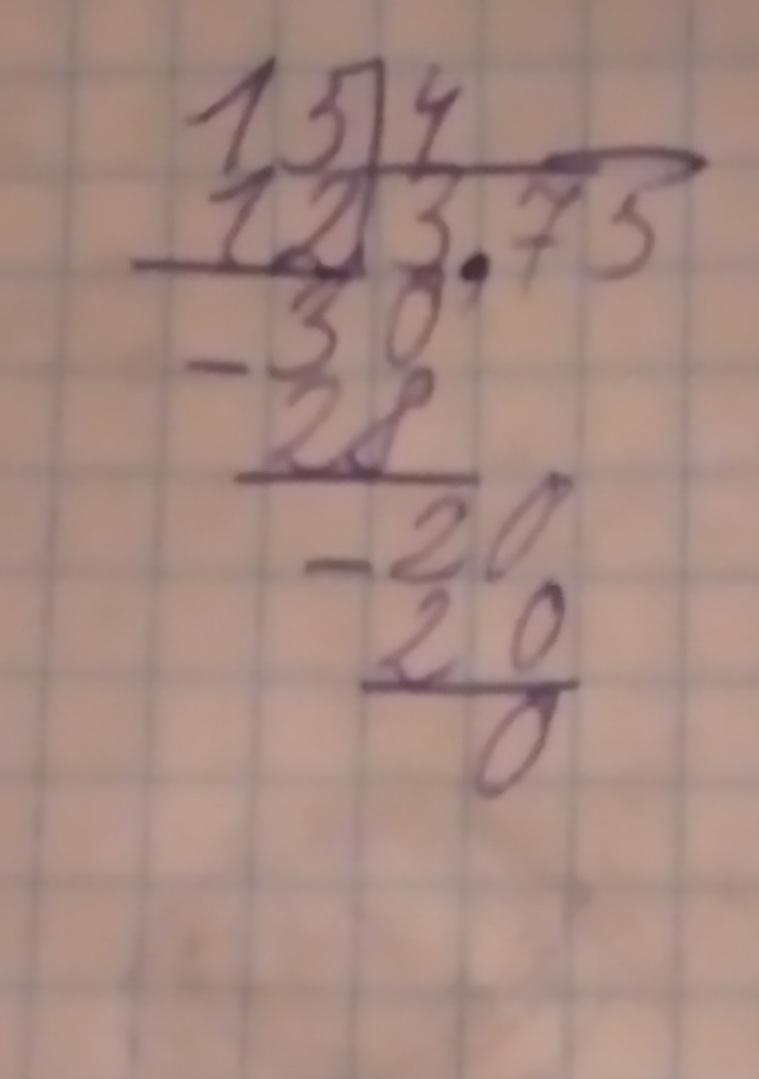 15 4
12 3.75
- 30
28
- 20
20
0